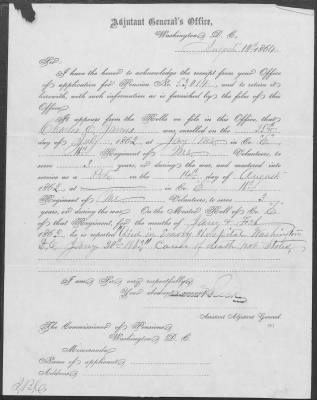 Adjutant General's Office,
Washington D. C.
August 10th 1864
Sir
I have the honor to acknowledge the receipt from your Office
of application for Pension No. 53,014, and to return it
herewith, with such information as is furnished by the files of this
Office.
It appears from the Rolls on file in this Office, that
Charles was enrolled on the
day of July, 1862 at in Co. E
11th Regiment of Me Volunteers, to
serve 3 years, or during the war, and mustered into
service as a on the day of August
1862, at in Co. E 11th
Regiment of Me Volunteers, to serve 3
years, or during the war. On the Muster Roll of Co. E
of that Regiment, for the months of Jany & Feb
1863, he is reported "Died in Hospital Washington
D.C. Jany Cause of death not stated
I am, Sir, very respectfully,
Your obedient
Assistant Adjutant General.
The Commissioner of Pensions
Washington D. C.
Memoranda
Name of applicant
Address